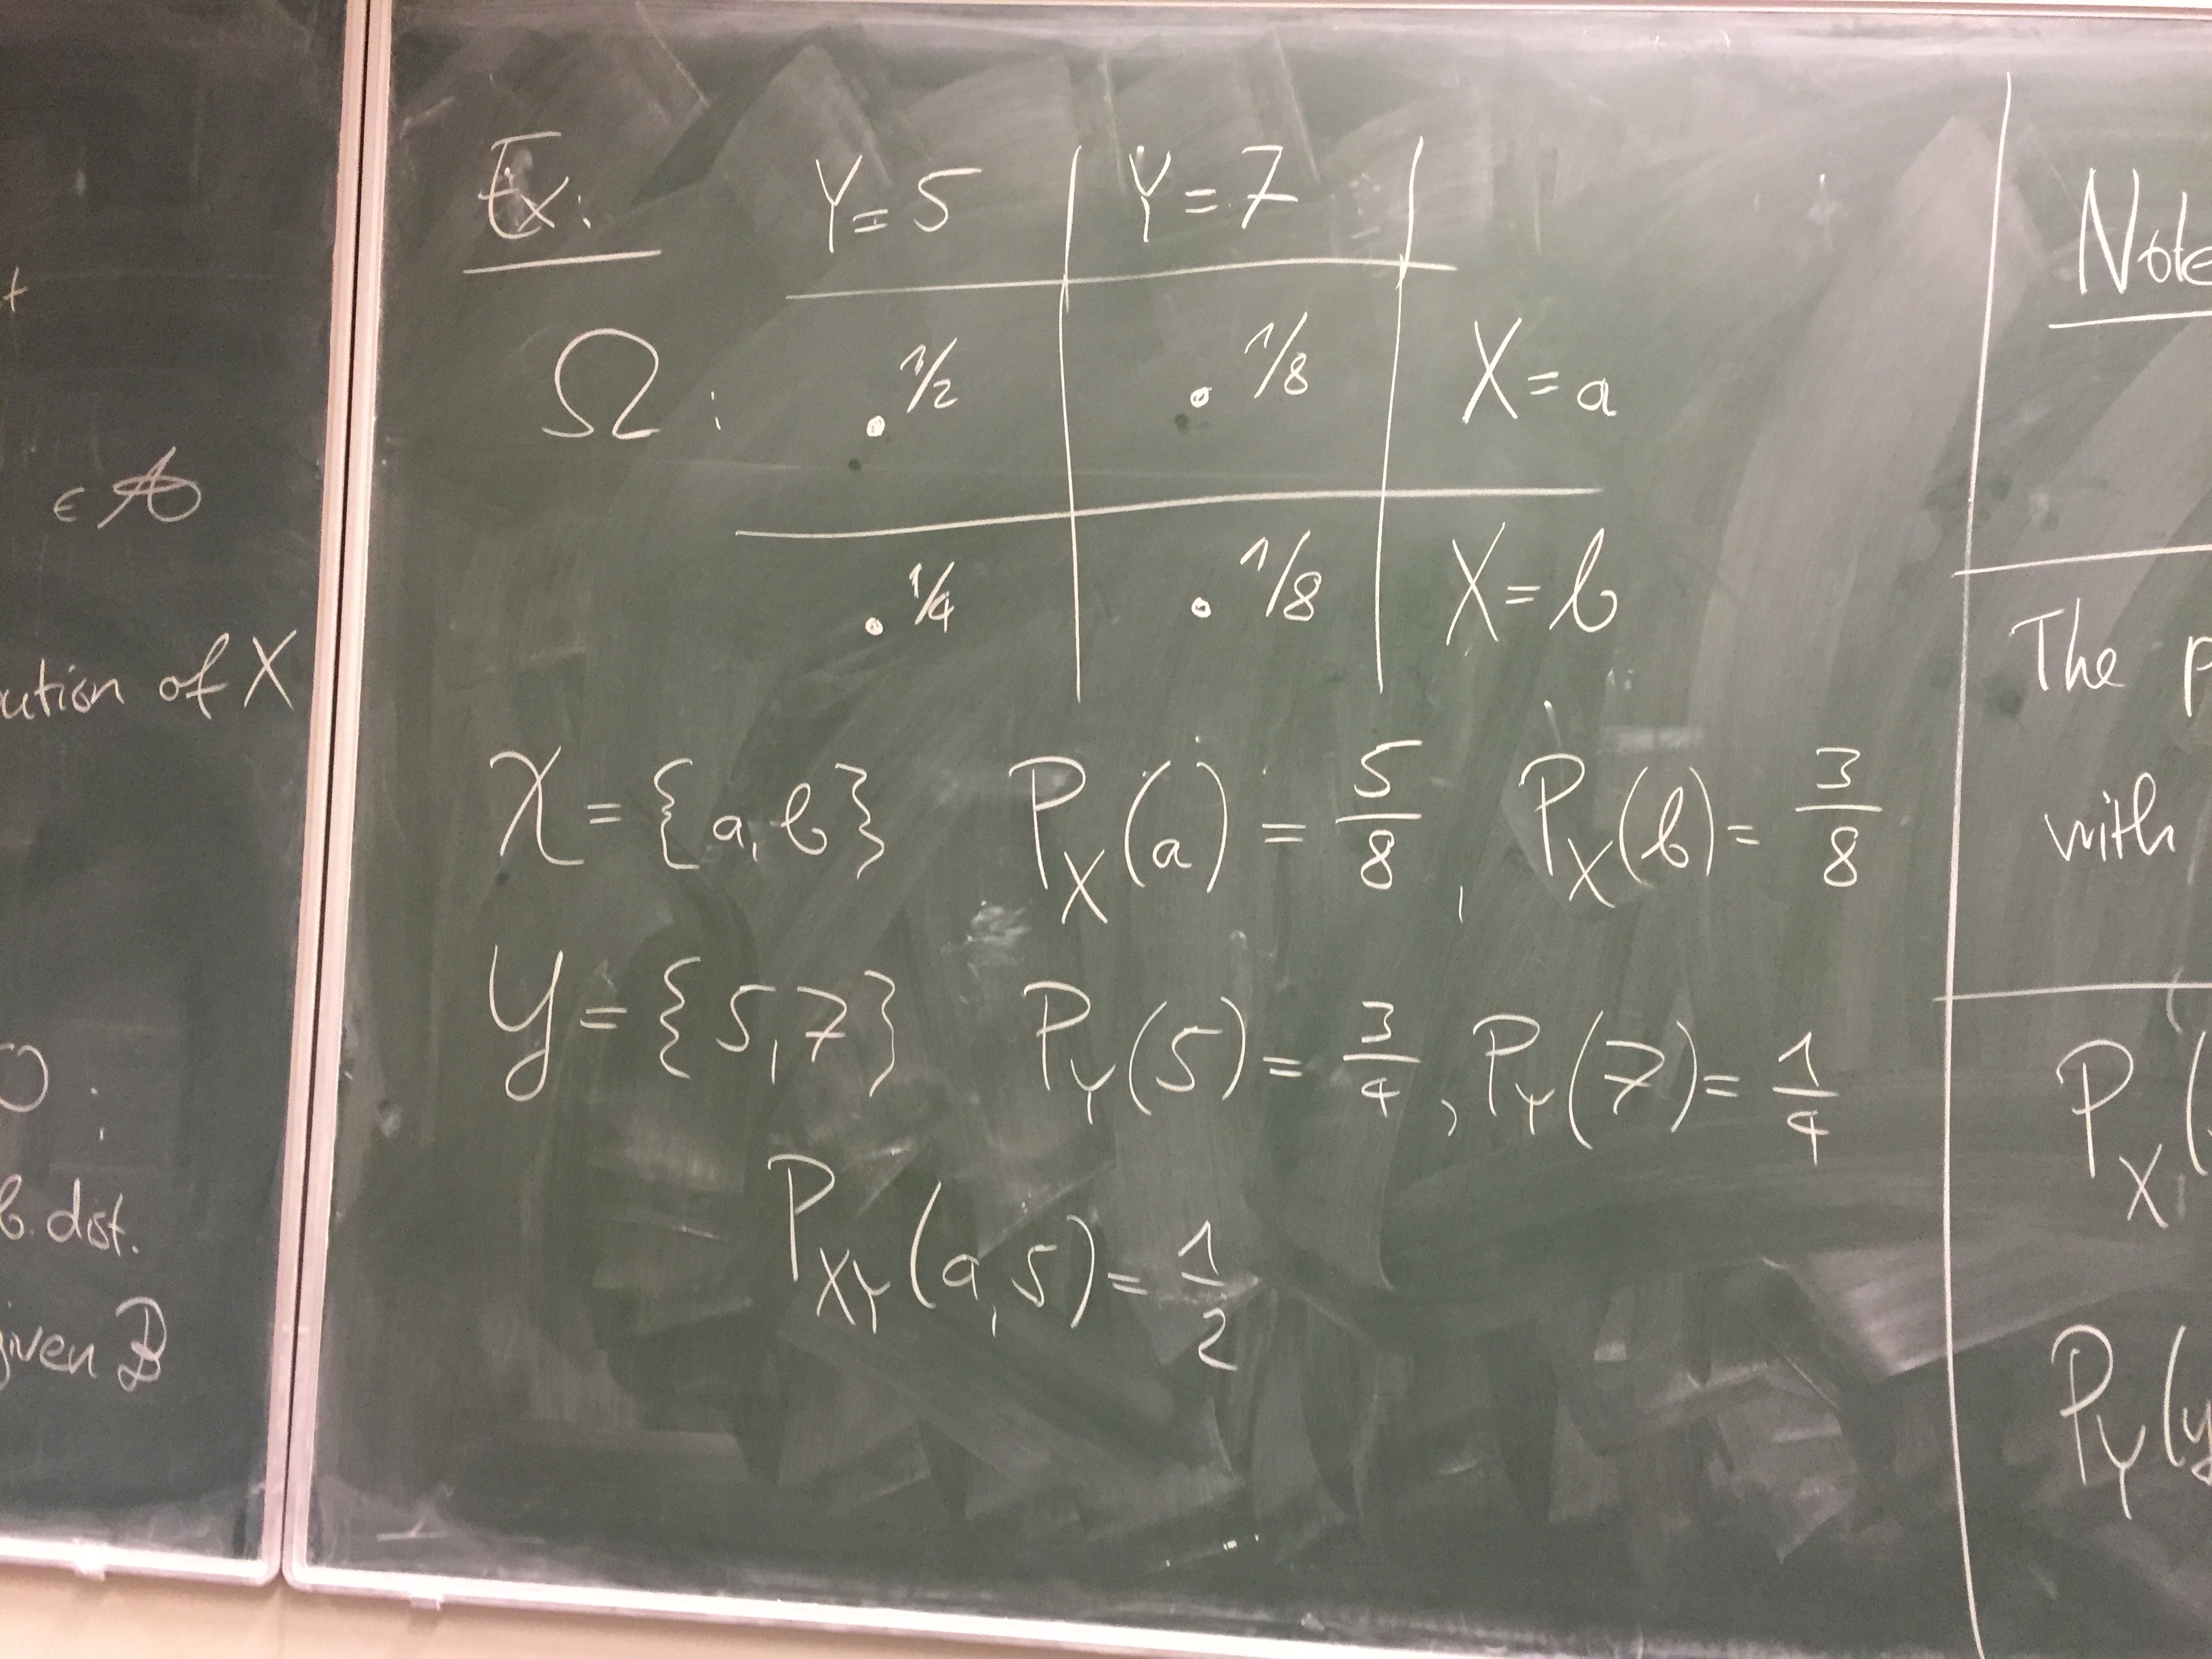 t
∈ A
ution of X
:
b. dist.
given B
Ex: Y=5 Y=7
Ω: 1/2 1/8 X=a
1/4 1/8 X=b
𝒳 = {a,b} P_X(a) = 5/8, P_X(b) = 3/8
𝒴 = {5,7} P_Y(5) = 3/4, P_Y(7) = 1/4
P_XY(a,5) = 1/2
Note
The p
with
P_X(
P_Y(y